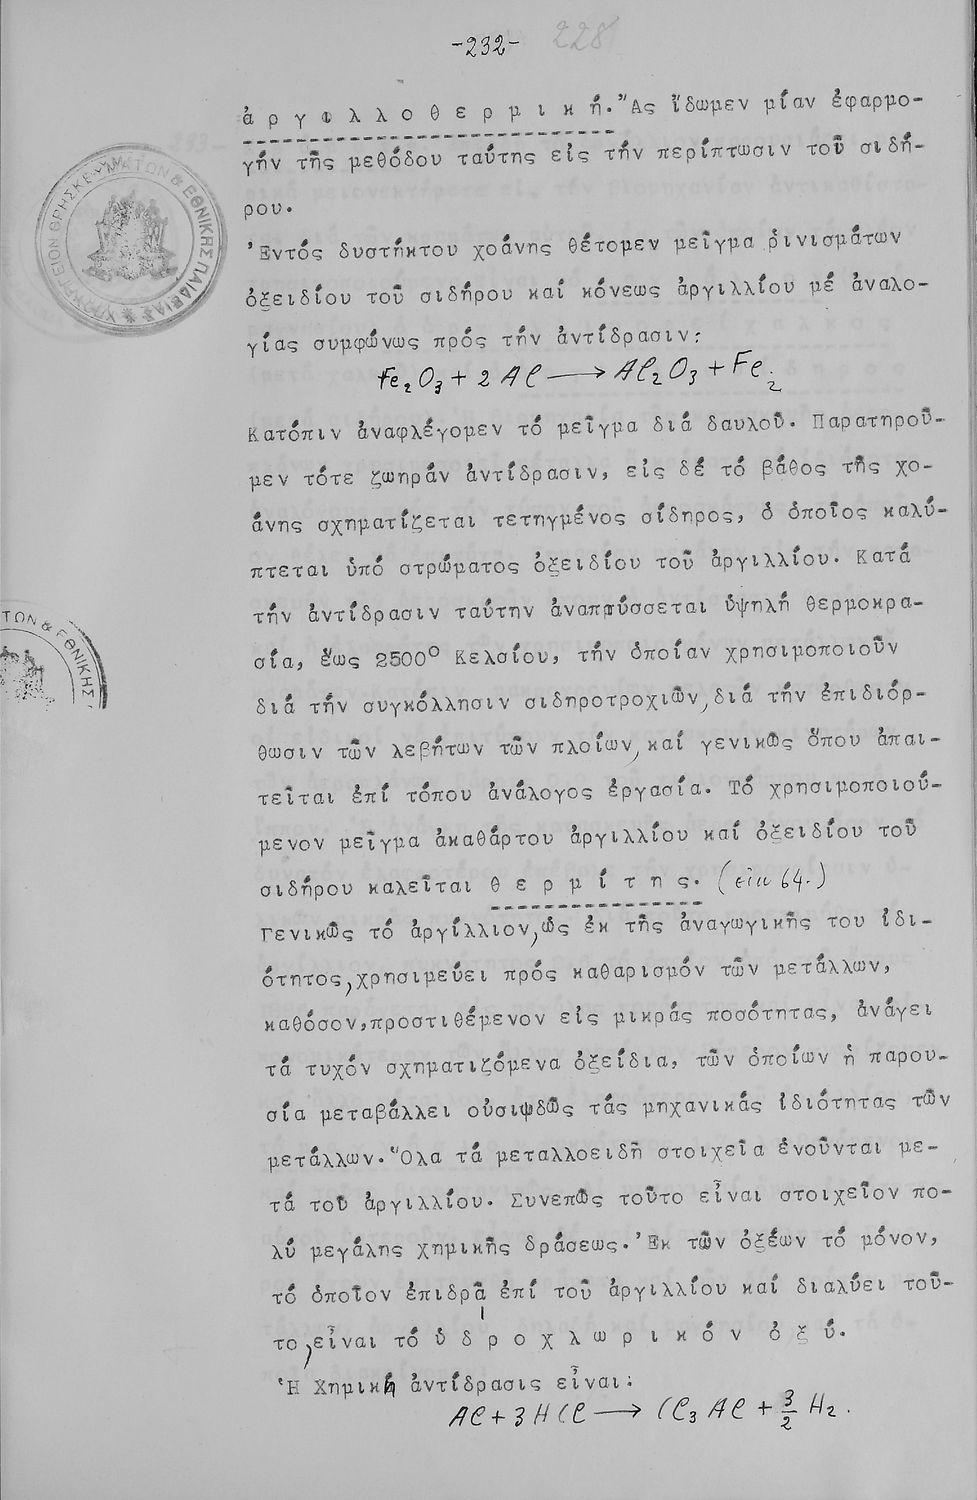 -232- 228
ἀργιλλοθερμική. Ἄς ἴδωμεν μίαν ἐφαρμο-
γήν τῆς μεθόδου ταύτης εἰς τήν περίπτωσιν τοῦ σιδή-
ρου.
Ἐντός δυστήκτου χοάνης θέτομεν μεῖγμα ῥινισμάτων
ὀξειδίου τοῦ σιδήρου καί κόνεως ἀργιλλίου μέ ἀναλο-
γίας συμφώνως πρός τήν ἀντίδρασιν:
Fe₂O₃ + 2 Al ⟶ Al₂O₃ + Fe₂
Κατόπιν ἀναφλέγομεν τό μεῖγμα διά δαυλοῦ. Παρατηροῦ-
μεν τότε ζωηράν ἀντίδρασιν, εἰς δέ τό βάθος τῆς χο-
άνης σχηματίζεται τετηγμένος σίδηρος, ὁ ὁποῖος καλύ-
πτεται ὑπό στρώματος ὀξειδίου τοῦ ἀργιλλίου. Κατά
τήν ἀντίδρασιν ταύτην ἀναπτύσσεται ὑψηλή θερμοκρα-
σία, ἕως 2500° Κελσίου, τήν ὁποίαν χρησιμοποιοῦν
διά τήν συγκόλλησιν σιδηροτροχιῶν, διά τήν ἐπιδιόρ-
θωσιν τῶν λεβήτων τῶν πλοίων, καί γενικῶς ὅπου ἀπαι-
τεῖται ἐπί τόπου ἀνάλογος ἐργασία. Τό χρησιμοποιού-
μενον μεῖγμα ἀκαθάρτου ἀργιλλίου καί ὀξειδίου τοῦ
σιδήρου καλεῖται θερμίτης. (εἰκ 64.)
Γενικῶς τό ἀργίλλιον, ὡς ἐκ τῆς ἀναγωγικῆς του ἰδι-
ότητος, χρησιμεύει πρός καθαρισμόν τῶν μετάλλων,
καθόσον, προστιθέμενον εἰς μικράς ποσότητας, ἀνάγει
τά τυχόν σχηματιζόμενα ὀξείδια, τῶν ὁποίων ἡ παρου-
σία μεταβάλλει οὐσιωδῶς τάς μηχανικάς ἰδιότητας τῶν
μετάλλων. Ὅλα τά μεταλλοειδῆ στοιχεῖα ἑνοῦνται με-
τά τοῦ ἀργιλλίου. Συνεπῶς τοῦτο εἶναι στοιχεῖον πο-
λύ μεγάλης χημικῆς δράσεως. Ἐκ τῶν ὀξέων τό μόνον,
τό ὁποῖον ἐπιδρᾶ ἐπί τοῦ ἀργιλλίου καί διαλύει τοῦ-
το, εἶναι τό ὑδροχλωρικόν ὀξύ.
Ἡ Χημική ἀντίδρασις εἶναι:
Al + 3HCl ⟶ Cl₃Al + 3/2 H₂.
ΥΠΟΥΡΓΕΙΟΝ ΘΡΗΣΚΕΥΜΑΤΩΝ & ΕΘΝΙΚΗΣ ΠΑΙΔΕΙΑΣ
ΤΩΝ & ΕΘΝΙΚΗΣ